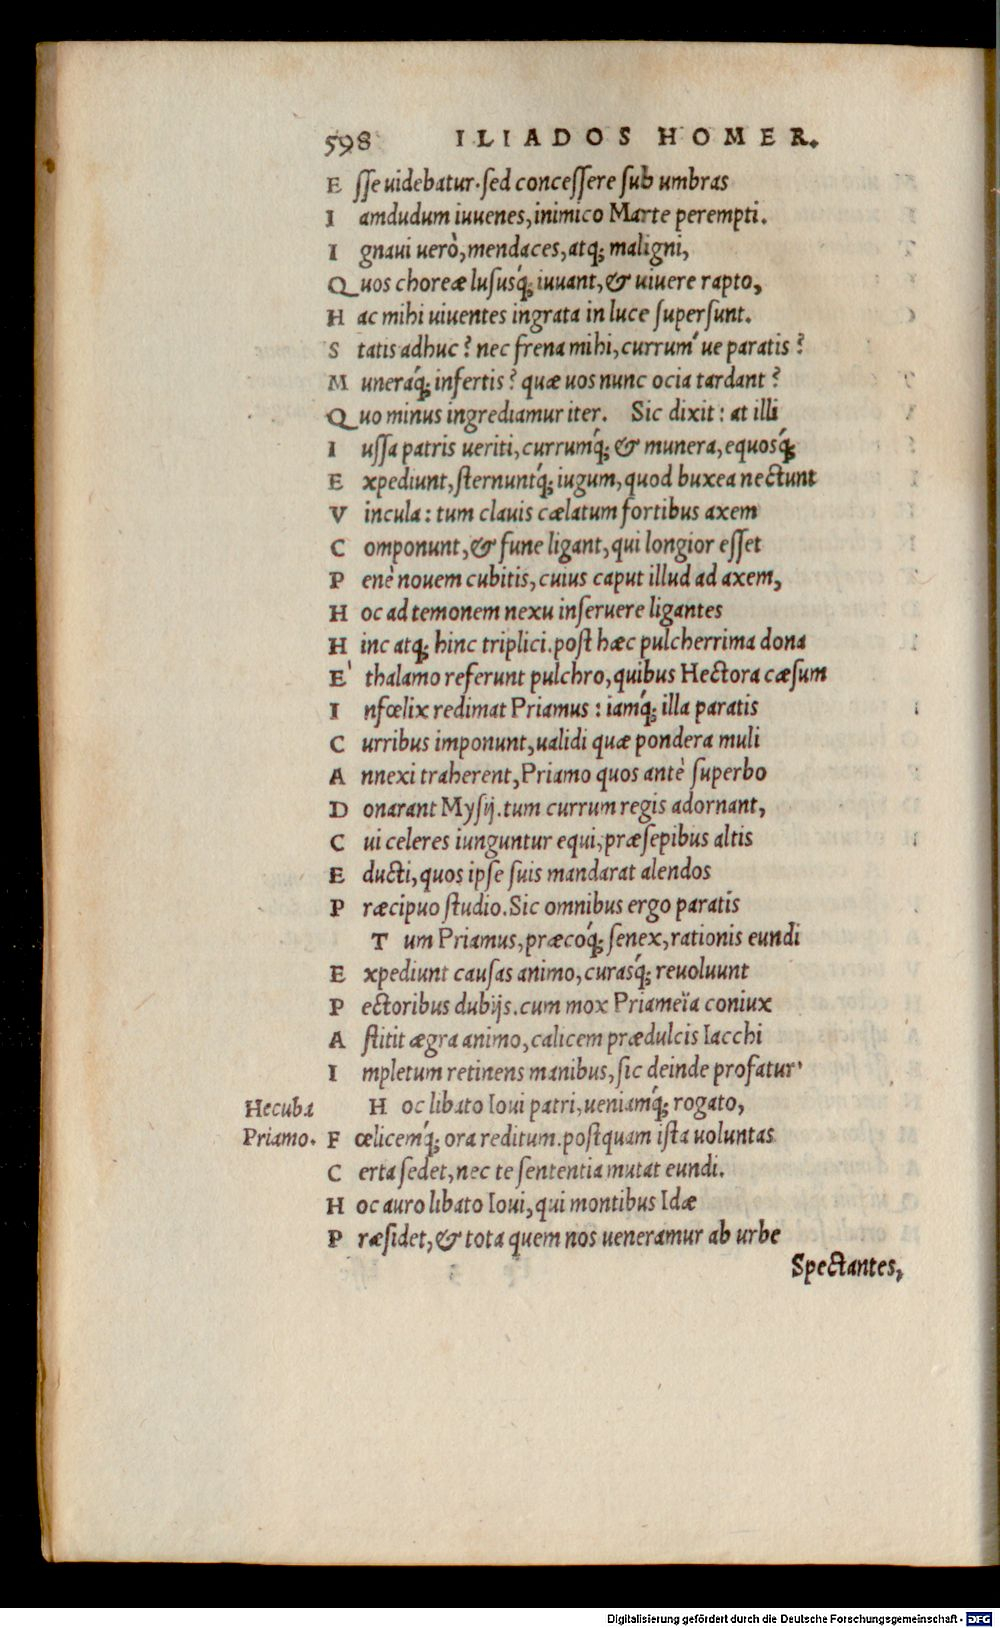 598 ILIADOS HOMER.
E sse uidebatur. sed concessere sub umbras
I amdudum iuuenes, inimico Marte perempti.
I gnaui uerò, mendaces, atq; maligni,
Q uos choreæ lususq́; iuuant, & uiuere rapto,
H ac mihi uiuentes ingrata in luce supersunt.
S tatis adhuc? nec frena mihi, currum'ue paratis?
M uneraq́; infertis? quæ uos nunc ocia tardant?
Q uo minus ingrediamur iter. Sic dixit: at illi
I ussa patris ueriti, currumq́; & munera, equosq́;
E xpediunt, sternuntq́; iugum, quod buxea nectunt
V incula: tum clauis cælatum fortibus axem
C omponunt, & fune ligant, qui longior esset
P enè nouem cubitis, cuius caput illud ad axem,
H oc ad temonem nexu inseruere ligantes
H inc atq; hinc triplici. post hæc pulcherrima dona
E' thalamo referunt pulchro, quibus Hectora cæsum
I nfœlix redimat Priamus: iamq́; illa paratis
C urribus imponunt, ualidi quæ pondera muli
A nnexi traherent, Priamo quos antè superbo
D onarant Mysij. tum currum regis adornant,
C ui celeres iunguntur equi, præsepibus altis
E ducti, quos ipse suis mandarat alendos
P ræcipuo studio. Sic omnibus ergo paratis
T um Priamus, præcoq́; senex, rationis eundi
E xpediunt causas animo, curasq́; reuoluunt
P ectoribus dubijs. cum mox Priameïa coniux
A stitit ægra animo, calicem prædulcis Iacchi
I mpletum retinens manibus, sic deinde profatur'
Hecuba H oc libato Ioui patri, ueniamq́; rogato,
Priamo. F œlicemq́; ora reditum. postquam ista uoluntas
C erta sedet, nec te sententia mutat eundi.
H oc auro libato Ioui, qui montibus Idæ
P ræsidet, & tota quem nos ueneramur ab urbe
Spectantes,
Digitalisierung gefördert durch die Deutsche Forschungsgemeinschaft - DFG